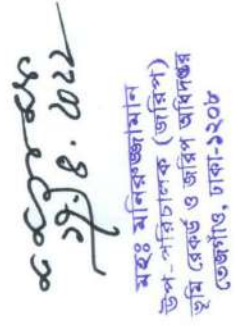 ২৭.৪.২০২২
মহঃ মনিরুজ্জামান
উপ-পরিচালক (জরিপ)
ভূমি রেকর্ড ও জরিপ অধিদপ্তর
তেজগাঁও, ঢাকা-১২০৮